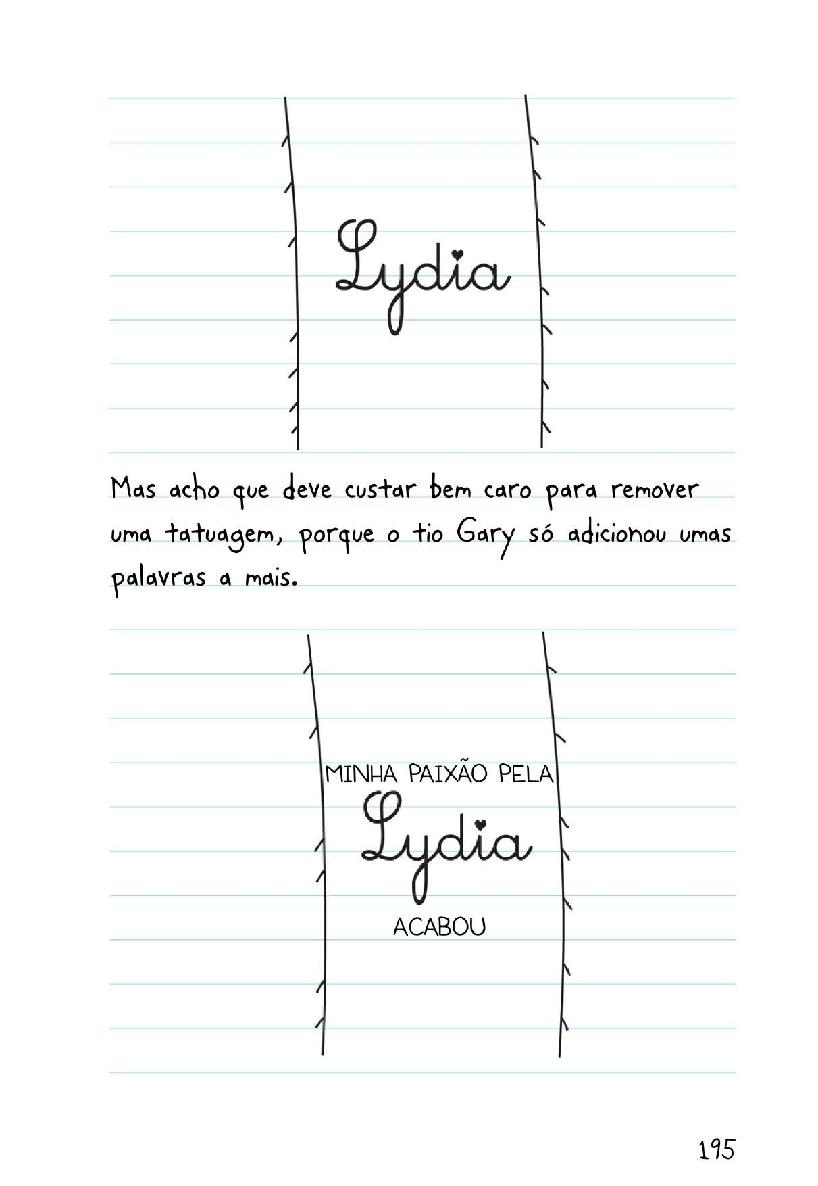 Lydia
Mas acho que deve custar bem caro para remover
uma tatuagem, porque o tio Gary só adicionou umas
palavras a mais.
MINHA PAIXÃO PELA
Lydia
ACABOU
195